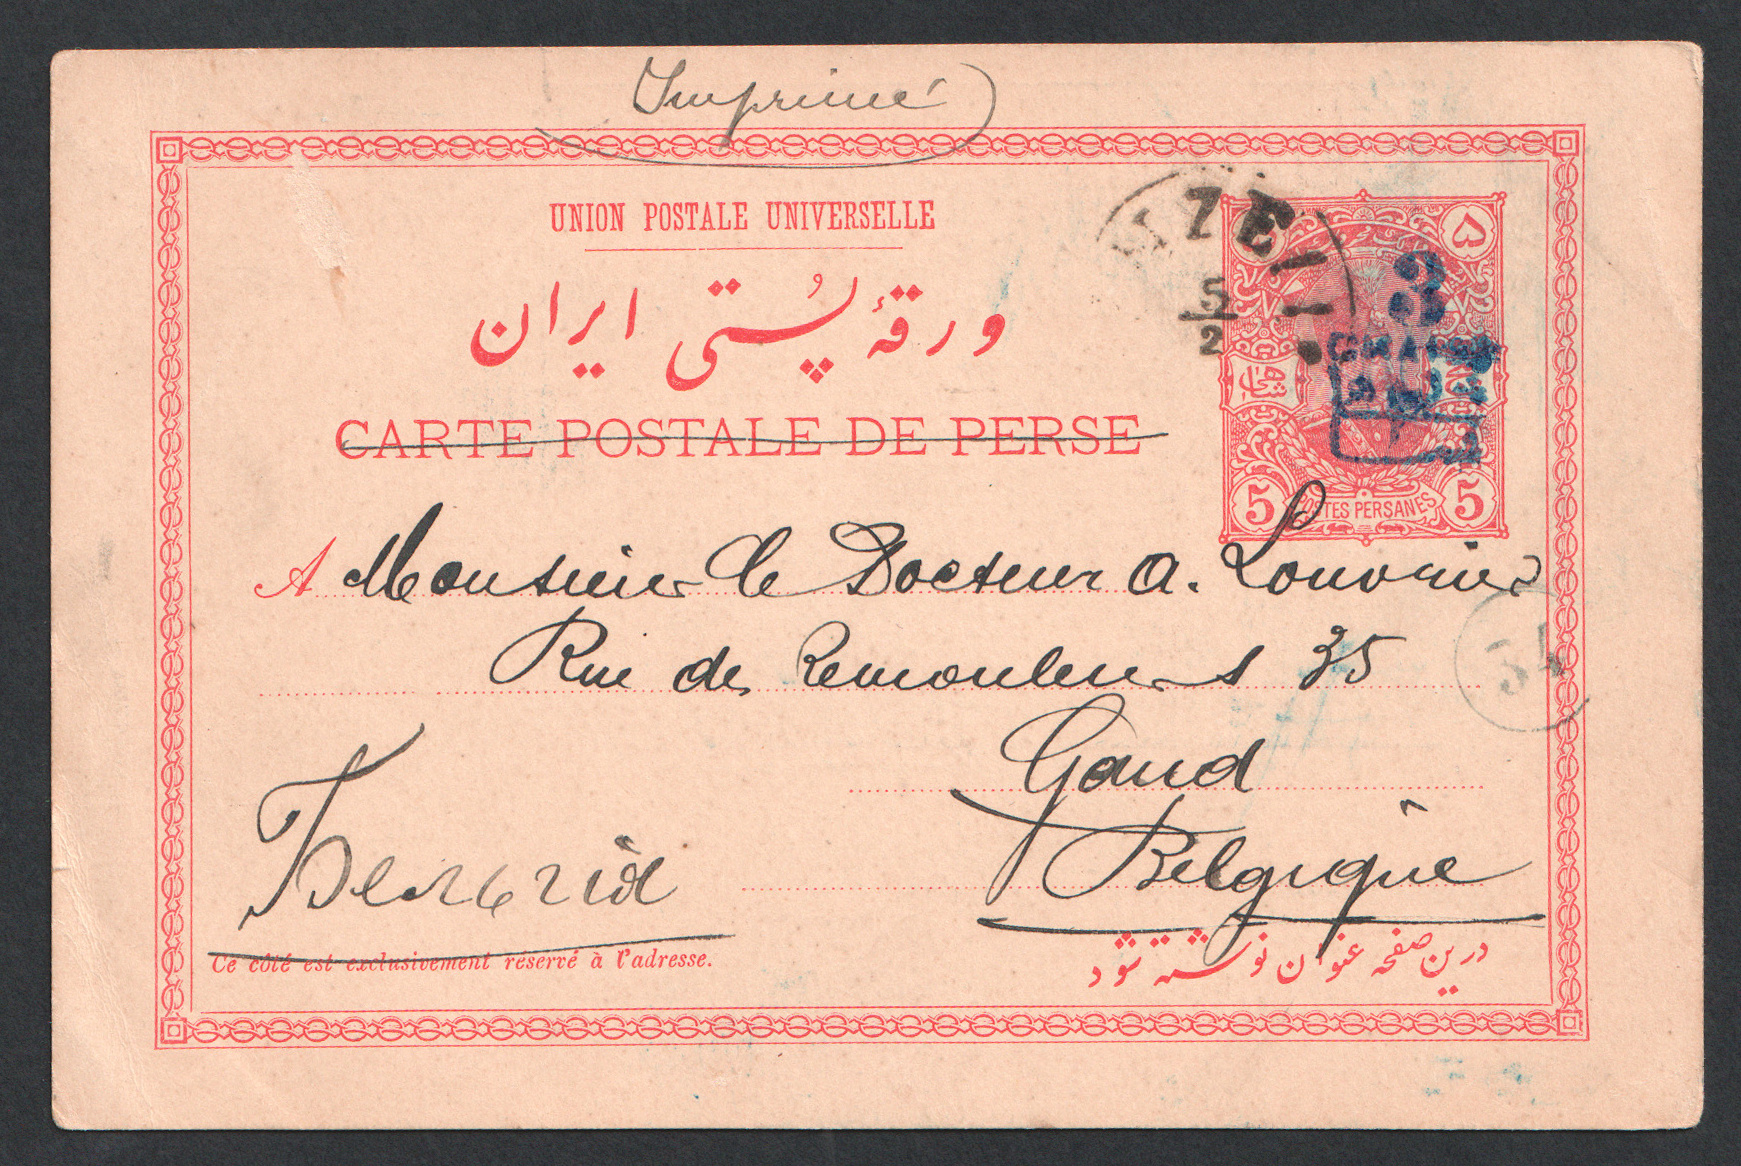 Imprimé
UNION POSTALE UNIVERSELLE
ورقهٔ پُستی ایران
CARTE POSTALE DE PERSE
۵
5 POSTES PERSANES 5
5
2
3
A Monsieur le Docteur A. Louvrier
Rue de Remouleurs 35
34
Gand
Belgique
Бельгія
Ce côté est exclusivement reservé à l'adresse.
درین صفحه عنوان نوشته شود